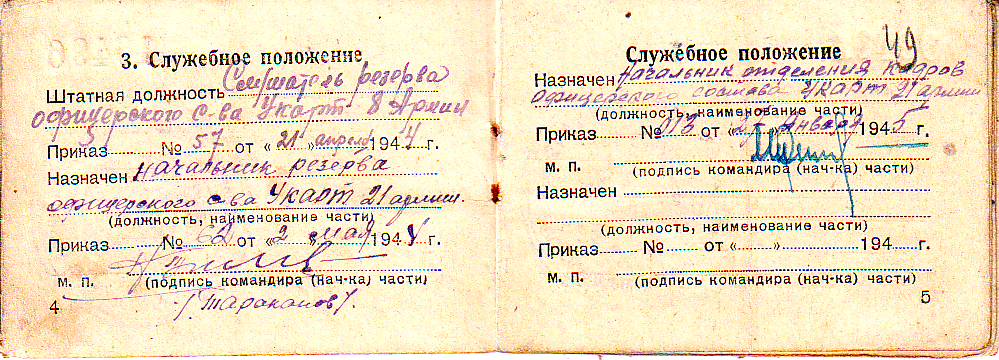 3. Служебное положение
Штатная должность Слушатель резерва
офицерского с-ва Укарт 8 Армии
Приказ № 57 от «21» апреля 1944 г.
Назначен Начальник резерва
офицерского с-ва Укарт 21 армии.
(должность, наименование части)
Приказ № 62 от «2» мая 1944 г.
м. п. (подпись командира (нач-ка) части)
/Тараканов/.
4
49
Служебное положение
Назначен Начальник отделения кадров
офицерского состава Укарт 21 армии
(должность, наименование части)
Приказ № 013 от « » января 1945 г.
м. п. (подпись командира (нач-ка) части)
Назначен
(должность, наименование части)
Приказ № от « » 194 г.
м. п. (подпись командира (нач-ка) части)
5